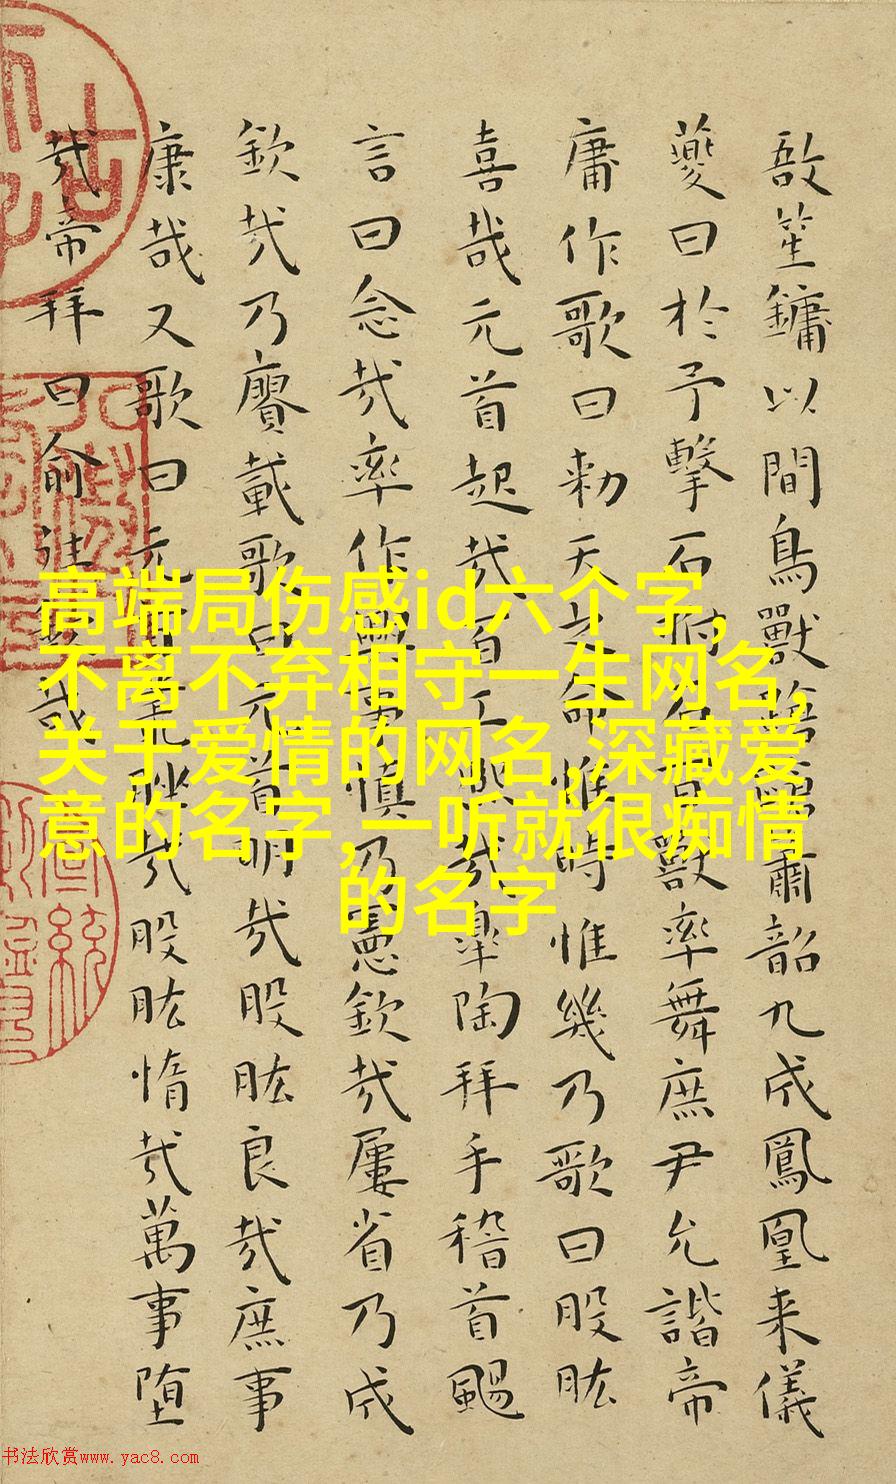 敔笙鏞以間鳥獸蹌蹌肅韶九成鳳凰来儀
夔曰於予擊石拊石百獸率舞庶尹允諧帝
庸作歌曰勑天之命惟時惟幾乃歌曰股肱
喜哉元首起哉百工熙哉皋陶拜手稽首颺
言曰念哉率作興事慎乃憲欽哉屢省乃成
欽哉乃賡載歌曰元首明哉股肱良哉庶事
康哉又歌曰元首叢脞哉股肱惰哉萬事堕
哉帝拜曰俞往欽哉
高端局伤感id六个字,
不离不弃相守一生网名,
关于爱情的网名,深藏爱
意的名字,一听就很痴情
的名字
书法欣赏www.yac8.com